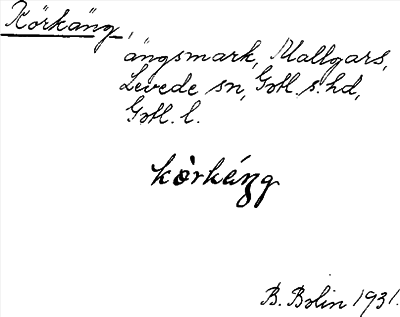 Körkäng,
ängsmark, Mallgars,
Levede sn, Gotl. s. hd,
Gotl. l.
kòrkáng
B. Bolin 1931.